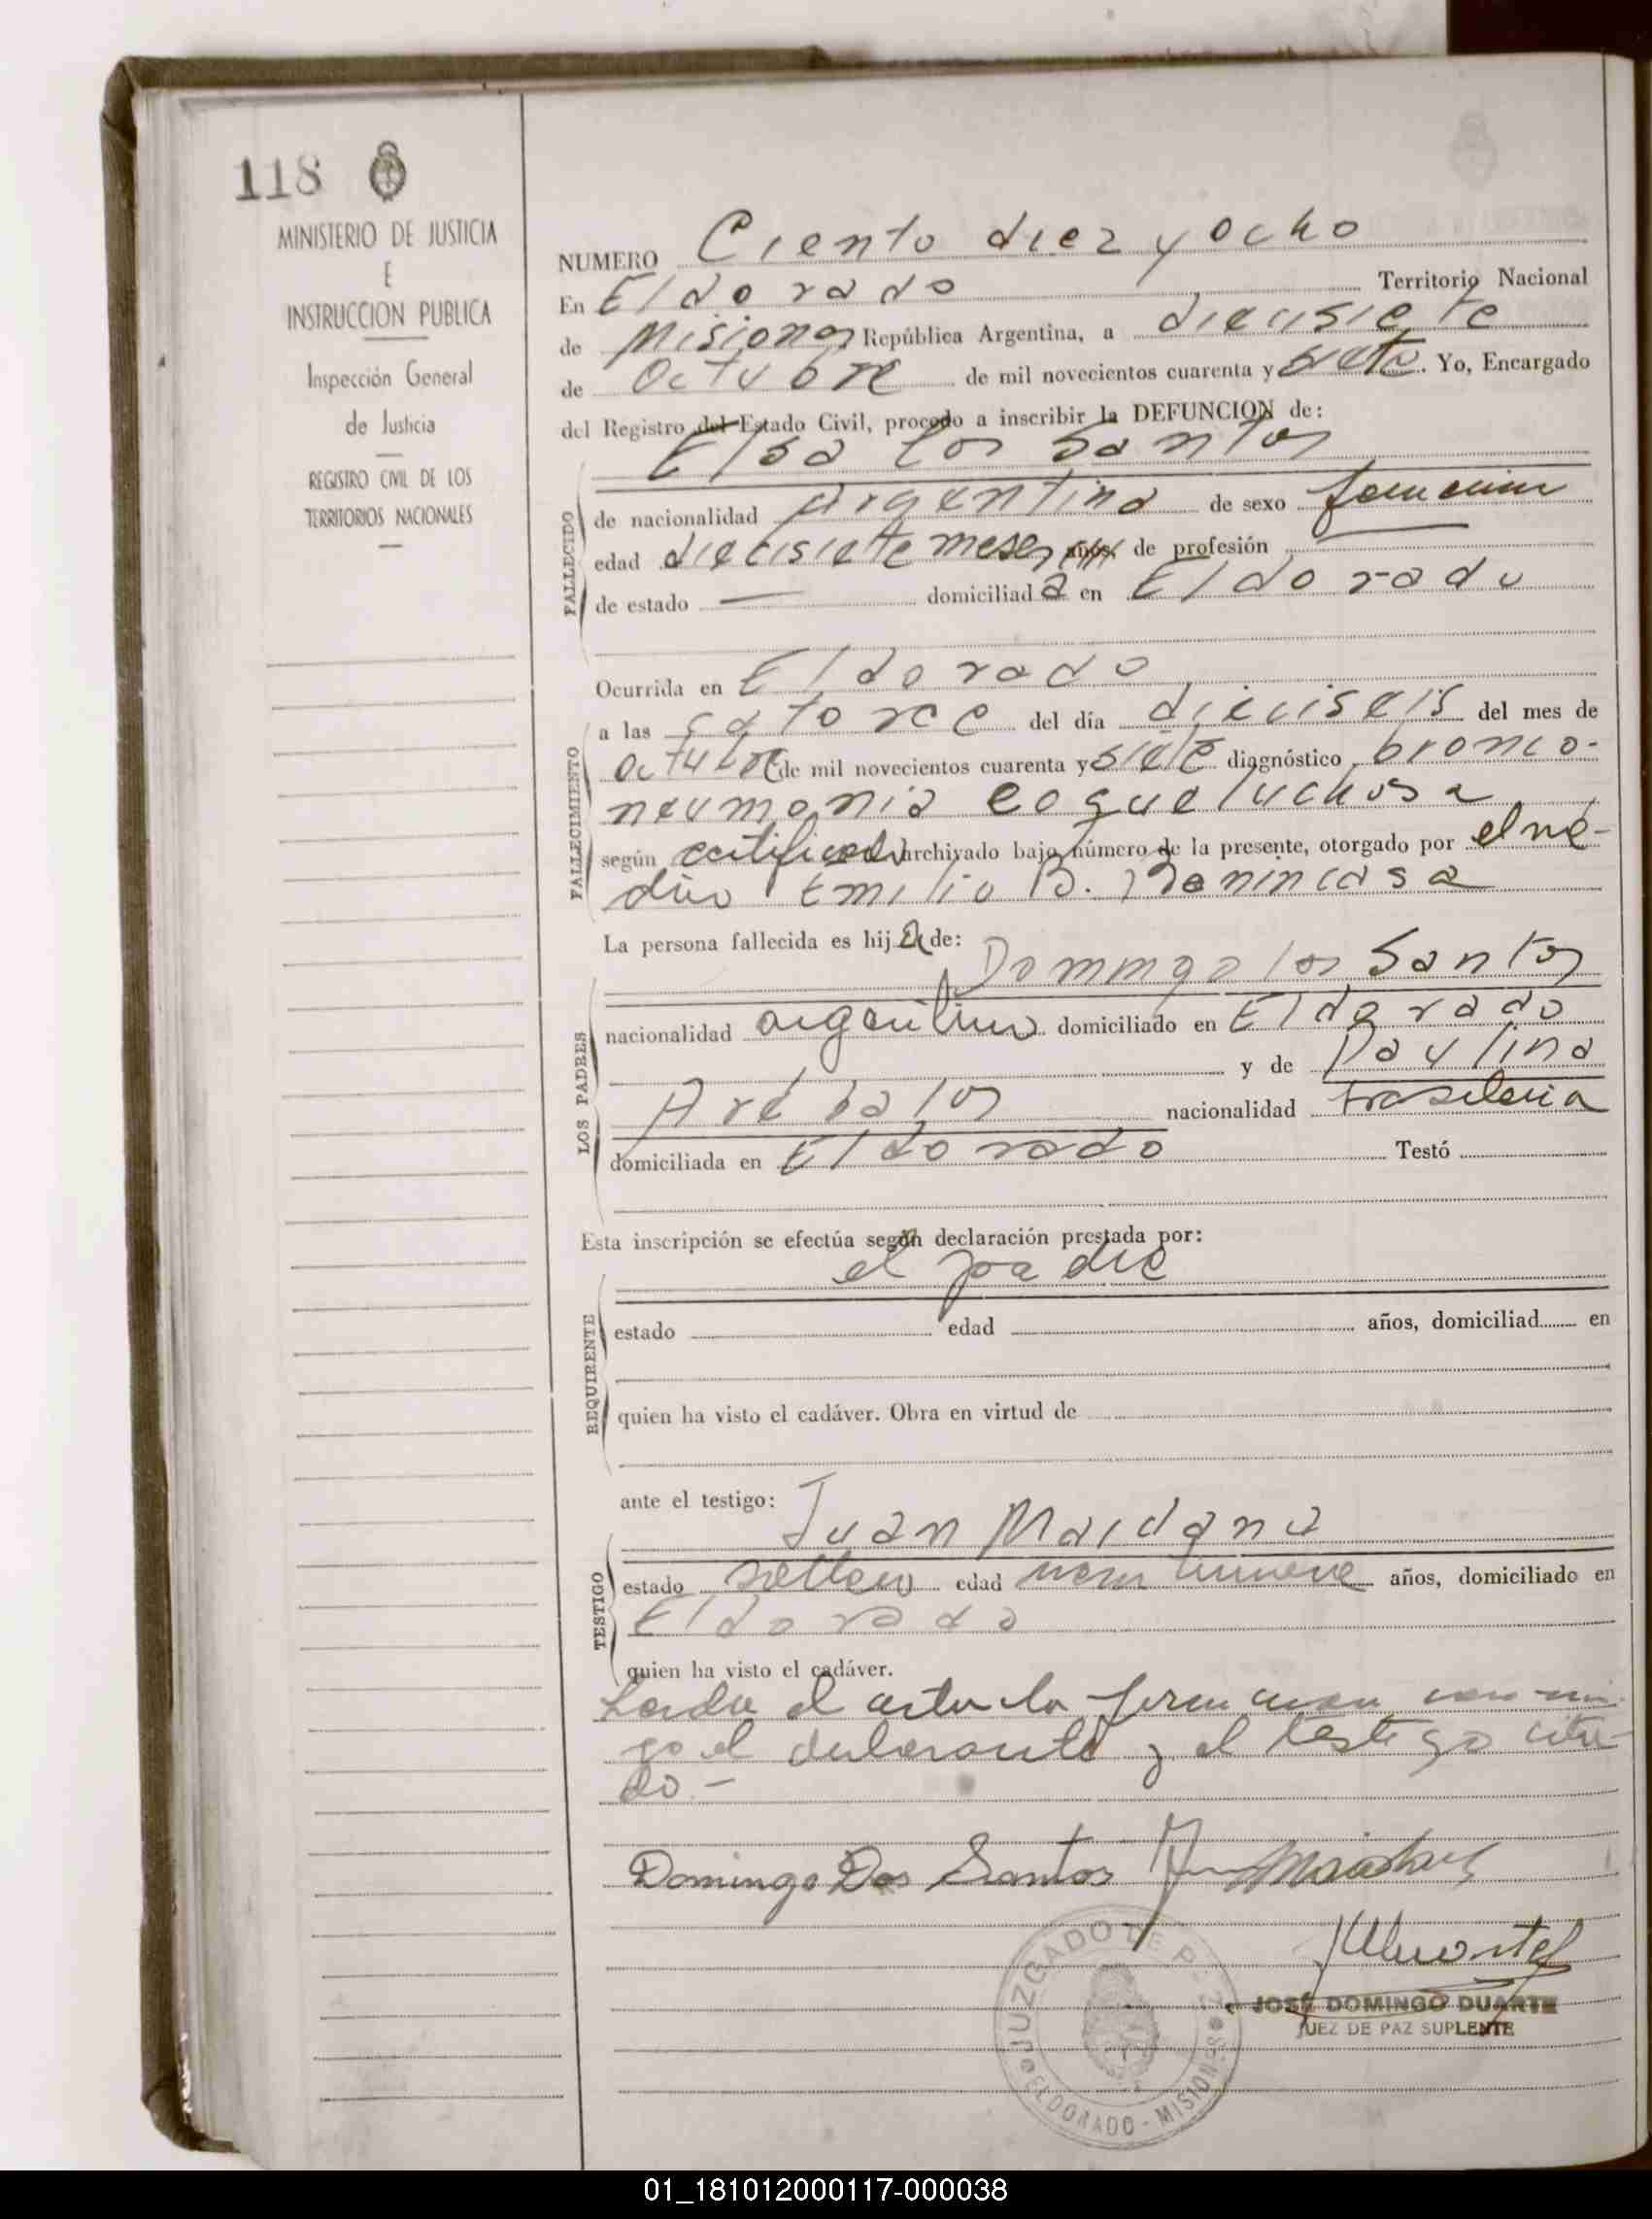 118
MINISTERIO DE JUSTICIA
E
INSTRUCCION PUBLICA
Inspección General
de Justicia
REGISTRO CIVIL DE LOS
TERRITORIOS NACIONALES
NUMERO Ciento diez y ocho
En Eldorado Territorio Nacional
de Misiones República Argentina, a diecisiete
de Octubre de mil novecientos cuarenta y siete. Yo, Encargado
del Registro del Estado Civil, procedo a inscribir la DEFUNCION de:
Elsa los Santos
FALLECIDO
de nacionalidad Argentina de sexo femenino
edad diecisiete meses años, de profesión
de estado — domiciliada en Eldorado
Ocurrida en Eldorado
FALLECIMIENTO
a las catorce del día dieciseis del mes de
octubre de mil novecientos cuarenta y siete diagnóstico bronco-
neumonia coqueluchosa
según certificado archivado bajo número de la presente, otorgado por el mé-
dico Emilio B. Benincasa
La persona fallecida es hija de:
Domingo los Santos
LOS PADRES
nacionalidad argentino domiciliado en Eldorado
y de Paulina
Arébalos nacionalidad brasileria
domiciliada en Eldorado Testó
Esta inscripción se efectúa según declaración prestada por:
el padre
REQUIRENTE
estado edad años, domiciliad en
quien ha visto el cadáver. Obra en virtud de
ante el testigo:
Juan Maidana
TESTIGO
estado soltero edad años, domiciliado en
Eldorado
quien ha visto el cadáver.
Leida el acta la firman conmi-
go el declarante y el testigo cita-
do-
Domingo Dos Santos Juan Maidana
JOSÉ DOMINGO DUARTE
JUEZ DE PAZ SUPLENTE
JUZGADO DE PAZ
ELDORADO - MISIONES
01_181012000117-000038